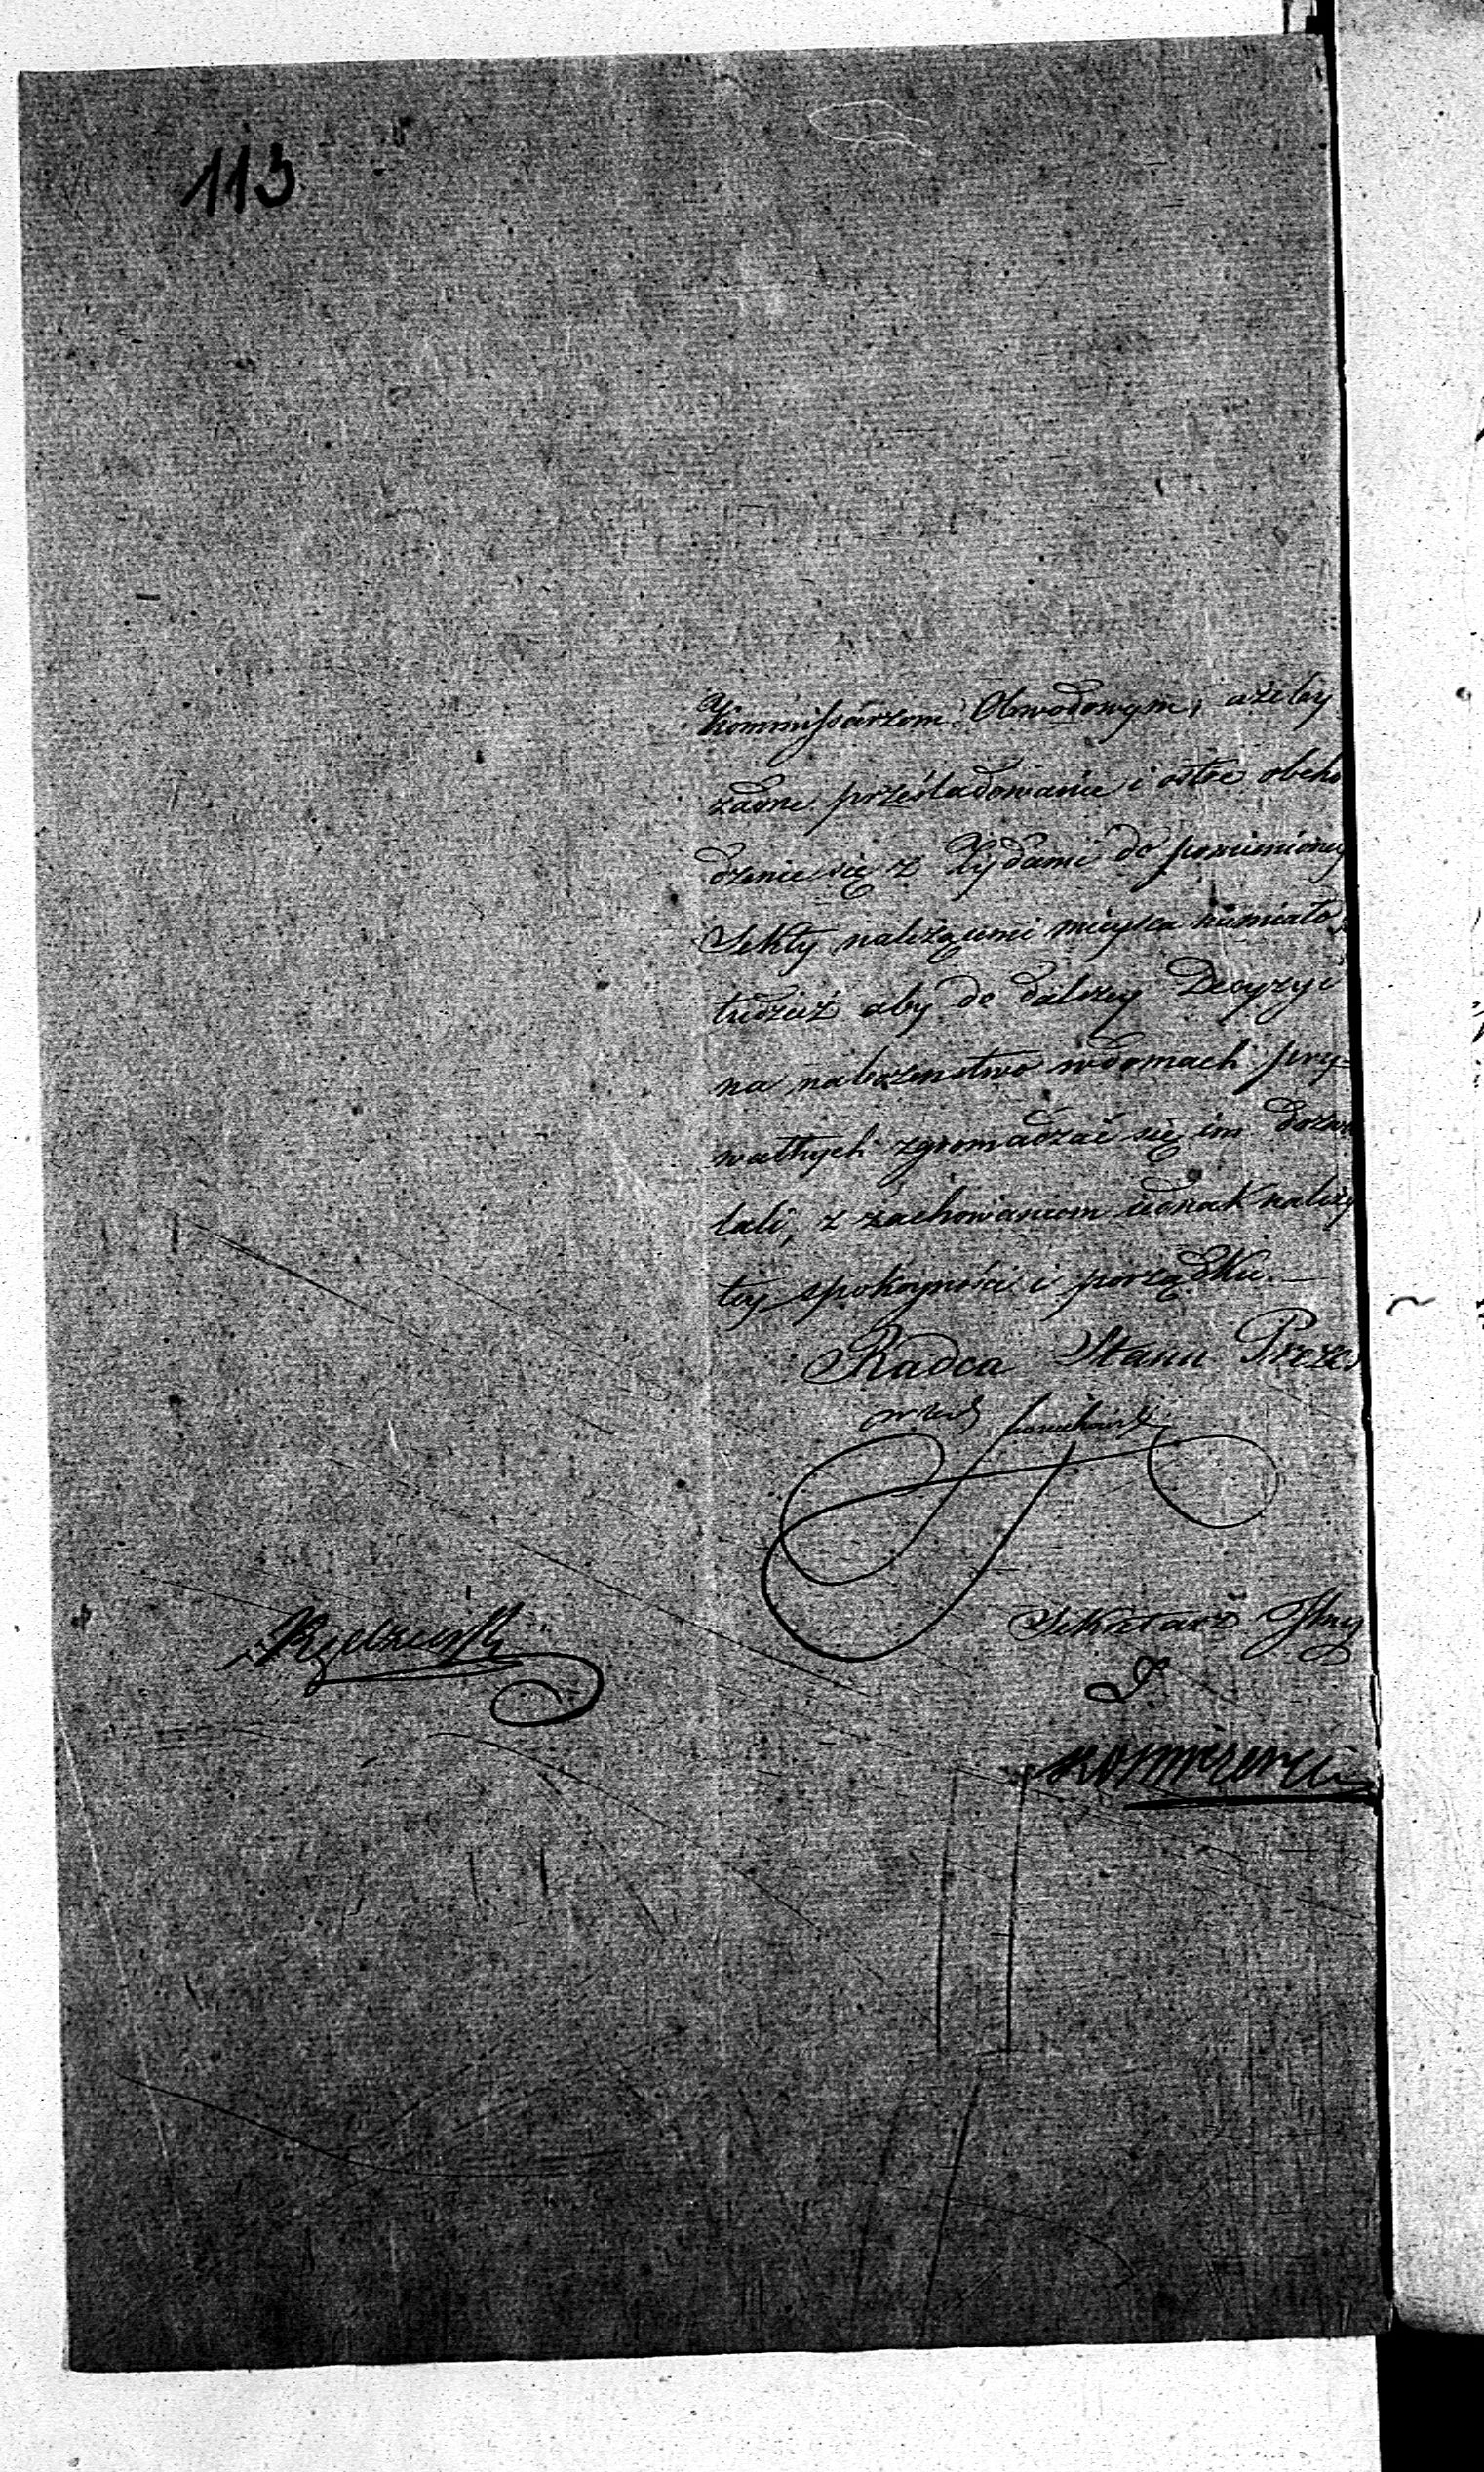 113
Kommissarzom Obwodowym, ażeby
żadne prześladowanie i ostre obcho
dzenie się z Żydami do pomienioney
Sekty należącemi mieysca niemiało,
tudzież aby do dalszey Decyzyi
na nabożenstwo w domach pry-
watnych zgromadzać się im dozwa
lali, z zachowaniem iednak należy
tey spokoyności i porządku.—
Radca Stanu Prezes
Sekretarz Jlny